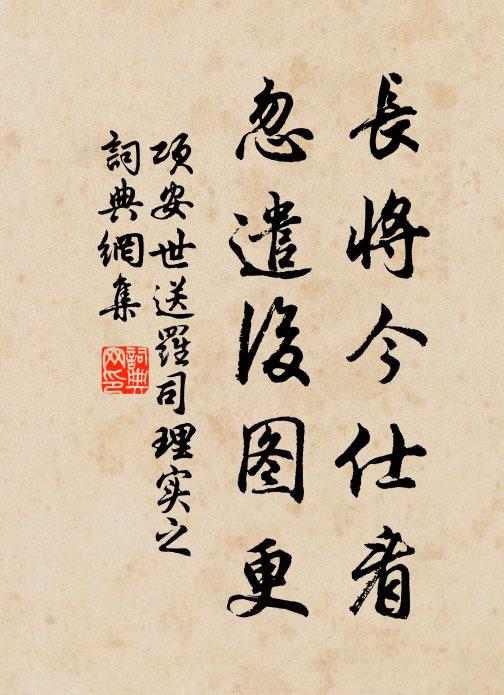 長將今仕看
忽遣後图更
項安世送羅司理实之
詞典網集
詞典
网印